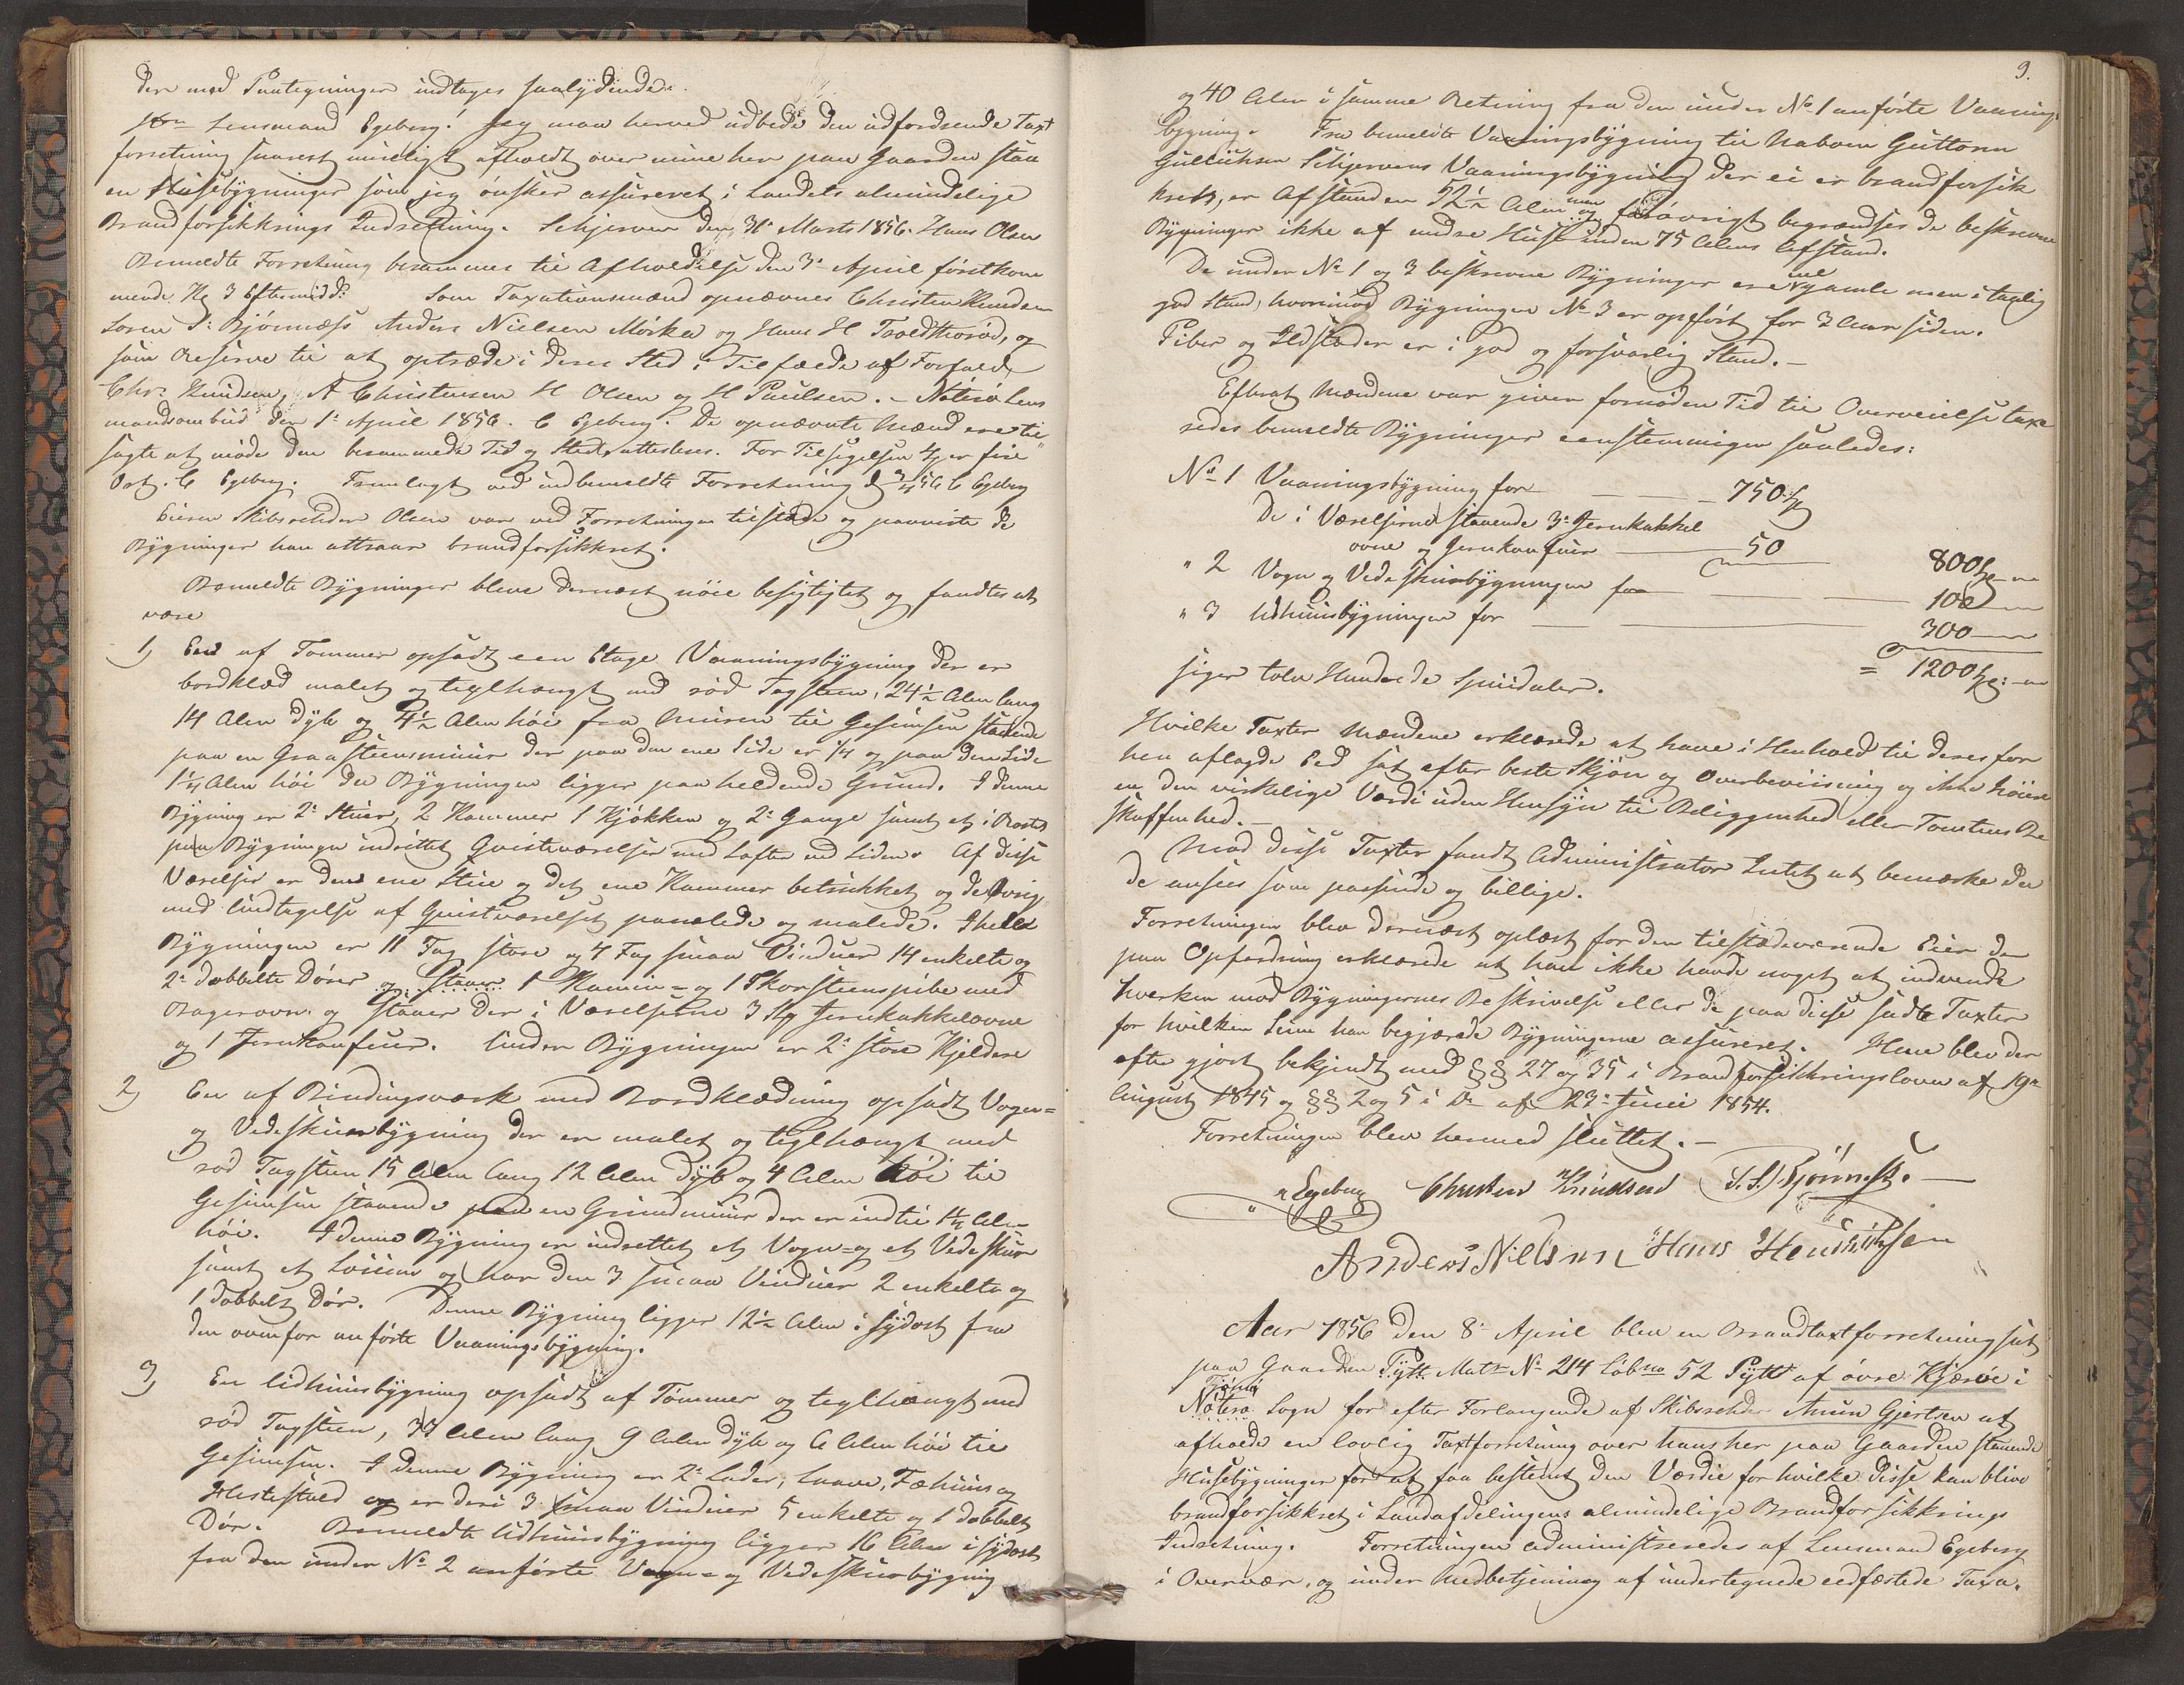 der med Paategninger indtages saalydende:
Hrr Lensmand Egeberg! Jeg maa herved udbede den udfordrende Taxt
forretning snarest mueligt afholdt over mine her paa Gaarden staa
en Huusebygninger som jeg ønsker assureret i Landets almindelige
Brandforsikkrings Indretning. Schjerven den 31 Marts 1856. Hans Olsen
Bemeldte Forretning berammes til Afholdelse den 3 April førstkom
mende Kl 3 Eftermidd: Som Taxationsmænd opnævnes Christen Knudsen
Søren S. Bjønnæss Anders Nielsen Mørka og Hans H Trældthorød, og
som Reserve til at optræde i deres Sted i Tilfælde af Forfald
Chr. Knudsen, A Christensen H Olsen og H Paulsen. – Nøterø Lens
mandsombud den 1 April 1856. C Egeberg. De opnævnte Mænd ere til
sagte at møde den berammede Tid og Sted, attesteres. For Tilsigelsen 4 er fire
Ort. C Egeberg. Fremlagt ved indbemeldte Forretning d 3/4 56 C Egeberg
Eieren Skibsrheder Olsen var ved Forretningen tilstede og paaviste de
Bygninger han attraar brandforsikkret.
Bemeldte Bygninger bleve dernæst nøie besigtiget og fandtes at
være
1) En af Tømmer opsadt een Etage Vaaningsbygning der er
bordklæd malet og teglhængt med rød Tagsteen, 24½ Alen lang
14 Alen dyb og 4½ Alen høi fra Muren til Gesimsen staaende
paa en Graasteensmuur der paa den ene Side er ¼ og paa den Side
1¼ Alen høi da Bygningen ligger paa heldende Grund. I denne
Bygning er 2 Stuer, 2 Kammer 1 Kjøkken og 2 Gange samt et i Røstet
paa Bygningen indrettet Qvistværelse med Lofter ved Siden. Af disse
Værelser er den ene Stue og det ene Kammer betrukket og de øvrig
med Undtagelse af Qvistværelset panelede og malede. I hele
Bygningen er 11 Fag store og 4 Fag smaa Vinduer 14 enkelte og
2 dobbelte Døre og Staaer 1 Kamin- og 1 Skorsteenspibe med
Bagerovn og staaer der i Værelserne 3 Jernkakkelovne
og 1 Jernkomfuur. Under Bygningen er 2 store Kjeldere
2) En af Bindingsværk med Bordklædning opsadt Vogn-
og Vedeskuurbygning der er malet og teglhængt med
rød Tagsteen 15 Alen lang 12 Alen dyb og 4 Alen høi til
Gesimsen staaende paa en Grundmuur der er indtil 1½ Alen
høi. I denne Bygning er indrettet et Vogn- og et Vedeskuur
samt et Locum og har den 3 smaa Vinduer 2 enkelte og
1 dobbelt Dør. Denne Bygning ligger 12½ Alen i sydost fra
den ovenfor anførte Vaaningsbygning.
3) En Udhuusbygning opsadt af Tømmer og teglhængt med
rød Tagsteen, 30 Alen lang 9 Alen dyb og 6 Alen høi til
Gesimsen. I denne Bygning er 2 Lader, Laave, Fæhuus og
Hestestald og er deri 3 smaa Vinduer 5 enkelte og 1 dobbelt
Dør. Bemeldte Udhuusbygning ligger 16 Alen i sydost
fra den under No 2 anførte Vogn- og Vedeskuurbygning
9.
og 40 Alen i samme Retning fra den under No 1 anførte Vaanings
bygning. Fra bemeldte Vaaningsbygning til Naboen Guttorm
Gulliksen Schjervens Vaaningsbygning der ei er brandforsik
kret, er Afstanden 52½ Alen men og forøvrigt begrændses de beskrevne
Bygninger ikke af andre Huse inden 75 Alens Afstand.
De under No 1 og 3 beskrevne Bygninger ere vel gamle men i taalig
god Stand, hvorimod Bygningen No 3 er opført for 3 Aar siden.
Piber og Ildsteder er i god og forsvarlig Stand. –
Efterat Mændene var given fornøden Tid til Overveielse taxe
redes bemeldte Bygninger eenstemmigen saaledes:
No 1 Vaaningsbygning for – – – 750
De i Værelserne staaende 3 Jernkakkel
ovne og Jernkomfuur – 50
800
" 2 Vogn og Vedeskuurbygningen for – – 100
" 3 Udhuusbygningen for – – 300
= 1200
siger tolv Hundrede Speciedaler.
Hvilke Taxter Mændene erklærede at have i Henhold til deres for
hen aflagde Eed sat efter beste Skjøn og Overbeviisning og ikke høiere
en den virkelige Værdi uden Hensyn til Beliggenhed eller Tomtens Be
skaffenhed. –
Mod disse Taxter fandt Administrator Intet at bemærke da
de ansees som passende og billige.
Forretningen blev dernæst oplæst for den tilstedeværende Eier der
paa Opfordring erklærede at han ikke havde noget at indvende
hverken mod Bygningernes Beskrivelse eller de paa disse sadte Taxter
for hvilken Sum han begjærede Bygningerne assureret. Han blev der
efter gjort bekjendt med §§ 27 og 35 i Brandforsikkringsloven af 19
August 1845 og §§ 2 og 5 i Do af 23 Juni 1854.
Forretningen blev hermed sluttet. –
Egeberg Christen Knudsen S. S. Bjønness. –
Anders Nilsen Hans Hendriksen
Aar 1856 den 8 April blev en Brandtaxtforretning sat
paa Gaarden Pytt Matr No 214 Løbno 52 Pytt af øvre Kjærøe i
Tjømø
Nøterø Sogn for efter Forlangende af Skibsrheder Anun Gjertsen at
afholde en lovlig Taxtforretning over hans her paa Gaarden staaende
Huusebygninger for at faa bestemt den Værdie for hvilke disse kan blive
brandforsikkret i Landafdelingens almindelige Brandforsikkrings
Indretning. Forretningen administreredes af Lensmand Egeberg
i Overvær, og under Medbetjening af undertegnede eedfæstede Taxa-